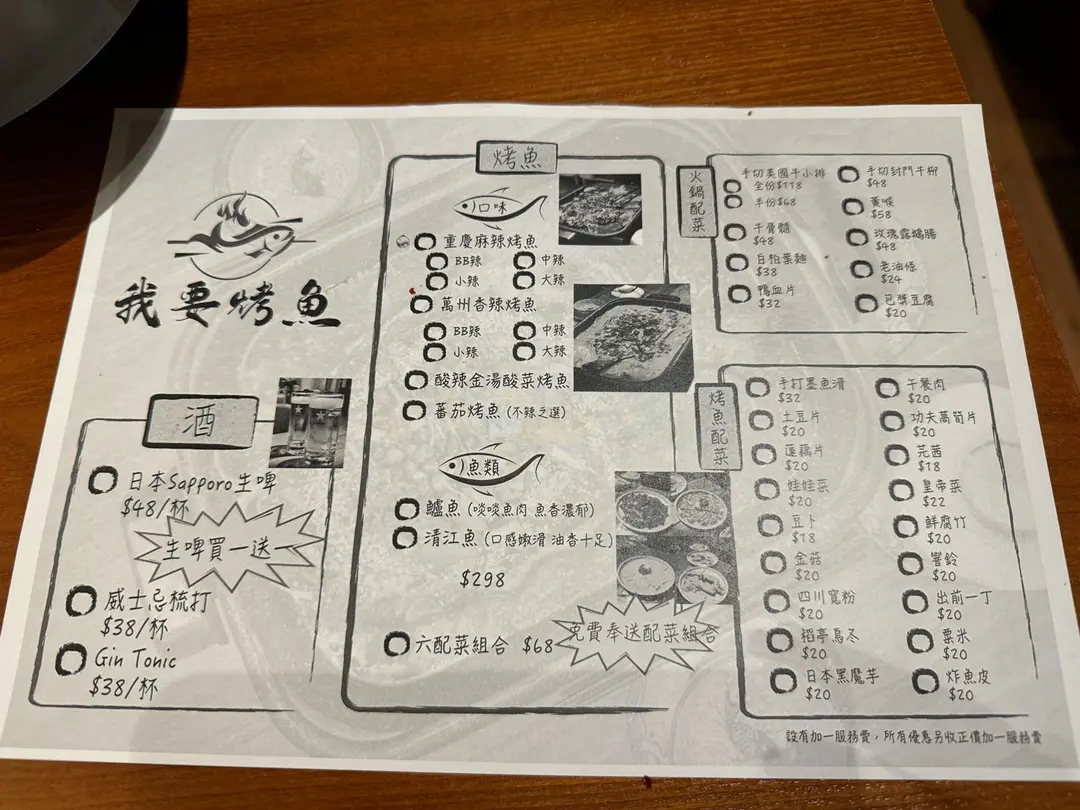 我要烤魚
酒
日本Sapporo生啤
$48/杯
生啤買一送一
威士忌梳打
$38/杯
Gin Tonic
$38/杯
烤魚
口味
重慶麻辣烤魚
BB辣 中辣
小辣 大辣
萬州香辣烤魚
BB辣 中辣
小辣 大辣
酸辣金湯酸菜烤魚
蕃茄烤魚 (不辣之選)
魚類
鱸魚 (啖啖魚肉 魚香濃郁)
清江魚 (口感嫩滑 油香十足)
$298
六配菜組合 $68
免費奉送配菜組合
火鍋配菜
手切美國牛小排
全份$118
半份$68
牛骨髓
$48
白柏葉麵
$38
鴨血片
$32
手切封門牛柳
$48
黃喉
$58
玫瑰露鵝腸
$48
老油條
$24
包漿豆腐
$20
烤魚配菜
手打墨魚滑
$32
土豆片
$20
蓮藕片
$20
娃娃菜
$20
豆卜
$18
金菇
$20
四川寬粉
$20
稻亭烏冬
$20
日本黑魔芋
$20
午餐肉
$20
功夫萵筍片
$20
芫茜
$18
皇帝菜
$22
鮮腐竹
$20
響鈴
$20
出前一丁
$20
粟米
$20
炸魚皮
$20
設有加一服務費，所有優惠另收正價加一服務費